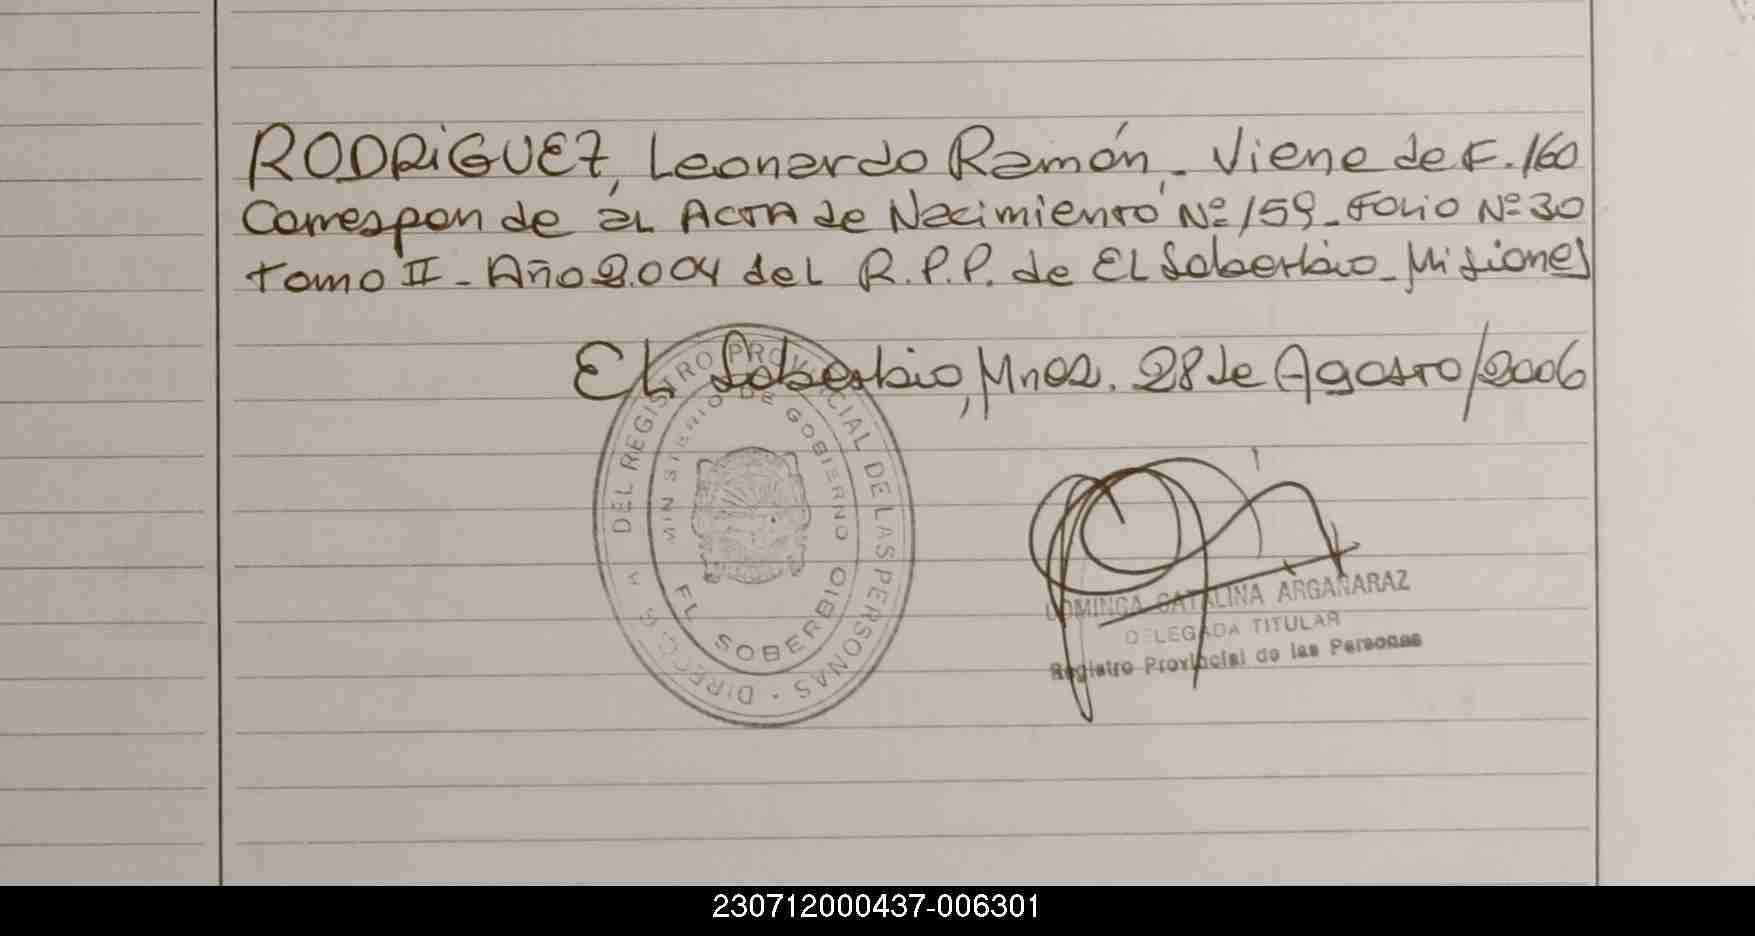 RODRiGUEZ, Leonardo Ramón,- Viene de F. 160
Correspon de al Acta de Nacimiento Nº 159 - Folio Nº 30
Tomo II - Año 2.004 del R.P.P. de El Soberbio - Misiones
El Soberbio, Mnes. 28 de Agosto/2006
DEL REGISTRO PROVINCIAL DE LAS PERSONAS ·
MINISTERIO DE GOBIERNO
EL SOBERBIO
DOMINGA CATALINA ARGAÑARAZ
DELEGADA TITULAR
Registro Provincial de las Personas
230712000437-006301